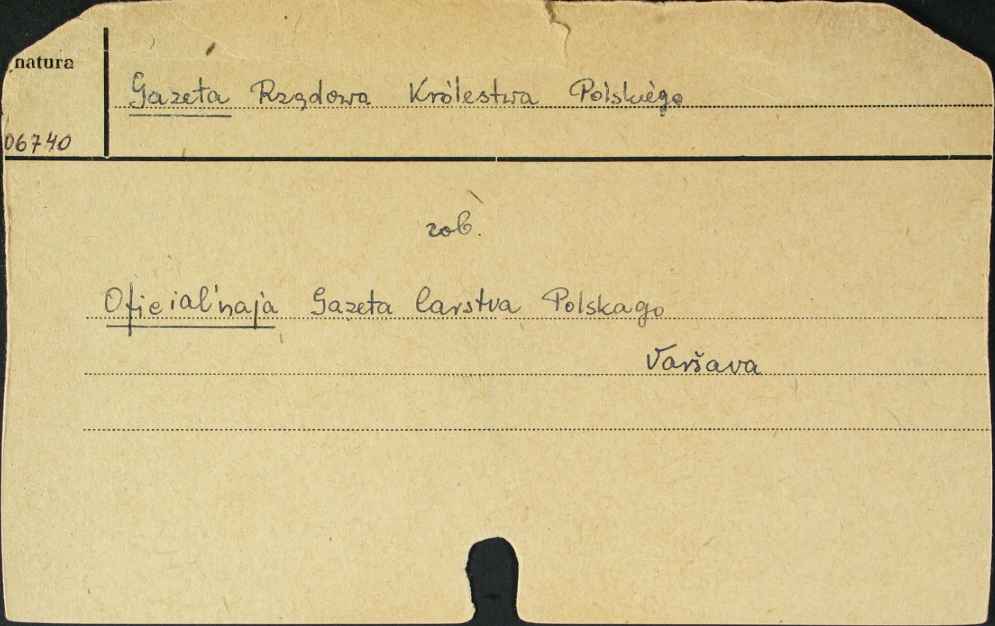 natura
Gazeta Rządowa Królestwa Polskiégo
06740
zob.
Oficial'naja Gazeta Carstva Polskago
Varšava